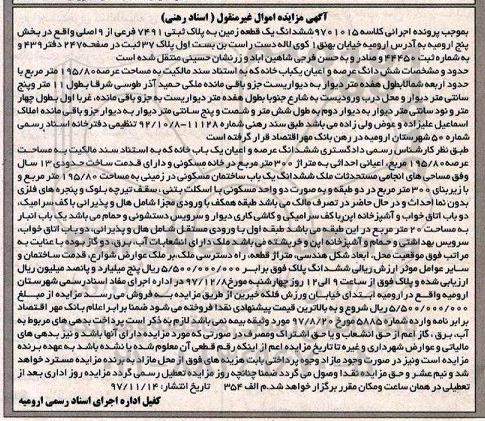 آگهی مزایده اموال غیرمنقول ( اسناد رهنی)
بموجب پرونده اجرائی کلاسه ۹۷۰۱۰۱۵ ششدانگ یک قطعه زمین به پلاک ثبتی ۷۴۹۱ فرعی از ۹ اصلی واقع در بخش
پنج ارومیه به آدرس ارومیه خیابان بهنق ۱ کوی لاله دست راست بن بست اول پلاک ۳۷ ثبت در صفحه ۲۴۷ دفتر ۴۳۹ و
به شماره ثبت ۷۴۴۵۰ و صادر و به حسن فرجی شاهین آباد و زرنشان حسینی منتقل شده است
حدود و مشخصات شش دانگ عرصه و اعیان یکباب خانه که به استناد سند مالکیت به مساحت عرصه ۱۹۵/۸۰ متر مربع با
حدود اربعه شمالا بطول هفده متر دیوار به دیواریست جزو باقی مانده ملکی حمید آذر طوسی شرقا بطول ۱۱ متر و پنج
سانتی متر دیوار و محل درب ورودیست به شارع جنوبا بطول هفده متر دیواریست به جزو باقی مانده، غربا اول بطول چهار
متر و نود سانتی متر دیوار به دیوار دوم به طول شش متر و شصت و پنج سانتی متر دیوار به دیوار جزو باقی مانده املاک
اسماعیل علیزاده و عوض ولی زاده می باشد طبق سند رهنی شماره ۱۱۱۲۸-۹۲/۱۰/۸ تنظیمی دفترخانه اسناد رسمی
شماره ۵۰ شهرستان ارومیه در رهن بانک مهر اقتصاد قرار گرفته است
طبق نظر کارشناس رسمی دادگستری ششدانگ عرصه و اعیان یک باب خانه که به استناد سند مالکیت به مساحت
عرصه ۱۹۵/۸۰ مربع، اعیانی احداثی به متراژ ۳۰۰ متر مربع در خانه مسکونی و دارای قدمت ساخت حدودی ۱۳ سال
وفق مساحی های انجامی مستحدثات ملک ششدانگ یک باب ساختمان مسکونی در زمینی به مساحت ۱۹۵/۸۰ متر مربع و
با زیربنای ۳۰۰ متر مربع در دو طبقه و به صورت دو واحد مسکونی با اسکلت بتنی، سقف تیرچه بلوک و پنجره های فلزی
بدون نما احداث و در حال حاضر در تصرف مالک می باشد طبقه همکف با ورودی مجزا شامل هال و پذیرائی با کف سرامیک،
دو باب اتاق خواب و آشپزخانه اپن با کف سرامیک و کاشی کاری دیوار و سرویس دستشوئی و حمام می باشد یک باب انبار
به مساحت ۲۰ متر مربع در این طبقه می باشد طبقه اول با ورودی مستقل شامل هال و پذیرائی، دو باب اتاق خواب،
سرویس بهداشتی و حمام و آشپزخانه اپن و خرپشته می باشد ملک دارای انشعابات آب، برق، دو گاز بوده با عنایت به
مراتب فوق موقعیت محل، ابعاد شکل هندسی، متراژ قطعه، راه دسترسی ملک، بر ملک عوارض شوارع، قدمت ساختمان و
سایر عوامل موثر ارزش ریالی ششدانگ پلاک فوق برابر ۵/۵۰۰/۰۰۰/۰۰۰ ریال پنج میلیارد و پانصد میلیون ریال
ارزیابی شده و پلاک فوق از ساعت ۹ الی ۱۲ روز چهارشنبه مورخ ۹۷/۱۲/۸ در اداره اجرای مفاد اسناد رسمی شهرستان
ارومیه واقع در ارومیه ابتدای خیابان ورزش فلکه خیرین از طریق مزایده به فروش می رسد. مزایده از مبلغ
۵/۵۰۰/۰۰۰/۰۰۰ ریال شروع و به بالاترین قیمت پیشنهادی نقدا فروخته می شود ضمنا برابر اعلام بانک مهر اقتصاد
برابر نامه وارده شماره ۵۸۸۵ مورخ ۹۷/۸/۲۰ مورد وثیقه بیمه نمی باشد لازم به ذکر است پرداخت بدهی های مربوط به
آب، برق، گاز اعم از حق انشعاب و یا حق اشتراک و مصرف در صورتی که مورد مزایده دارای آنها باشد و نیز بدهی های
مالیاتی و عوارض شهرداری و غیره تا تاریخ مزایده اعم از اینکه رقم قطعی آن معلوم شده یا نشده باشد به عهده برنده
مزایده است و نیز در صورت وجود مازاد وجوه پرداختی بابت هزینه های فوق از محل مازاد به برنده مزایده مسترد خواهد
شد و نیم عشر و حق مزایده نقدا وصول می گردد ضمنا چنانچه روز مزایده تعطیل رسمی گردد مزایده روز اداری بعد از
تعطیلی در همان ساعت و مکان مقرر برگزار خواهد شد. م الف ۳۵۴ تاریخ انتشار: ۹۷/۱۱/۱۴
کفیل اداره اجرای اسناد رسمی ارومیه